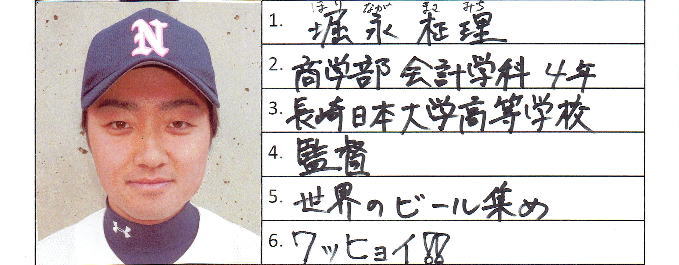 N
ほり なが まさ みち
1. 堀 永 柾 理
2. 商学部 会計学科 4年
3. 長崎日本大学高等学校
4. 監督
5. 世界のビール集め
6. ワッヒョイ!!